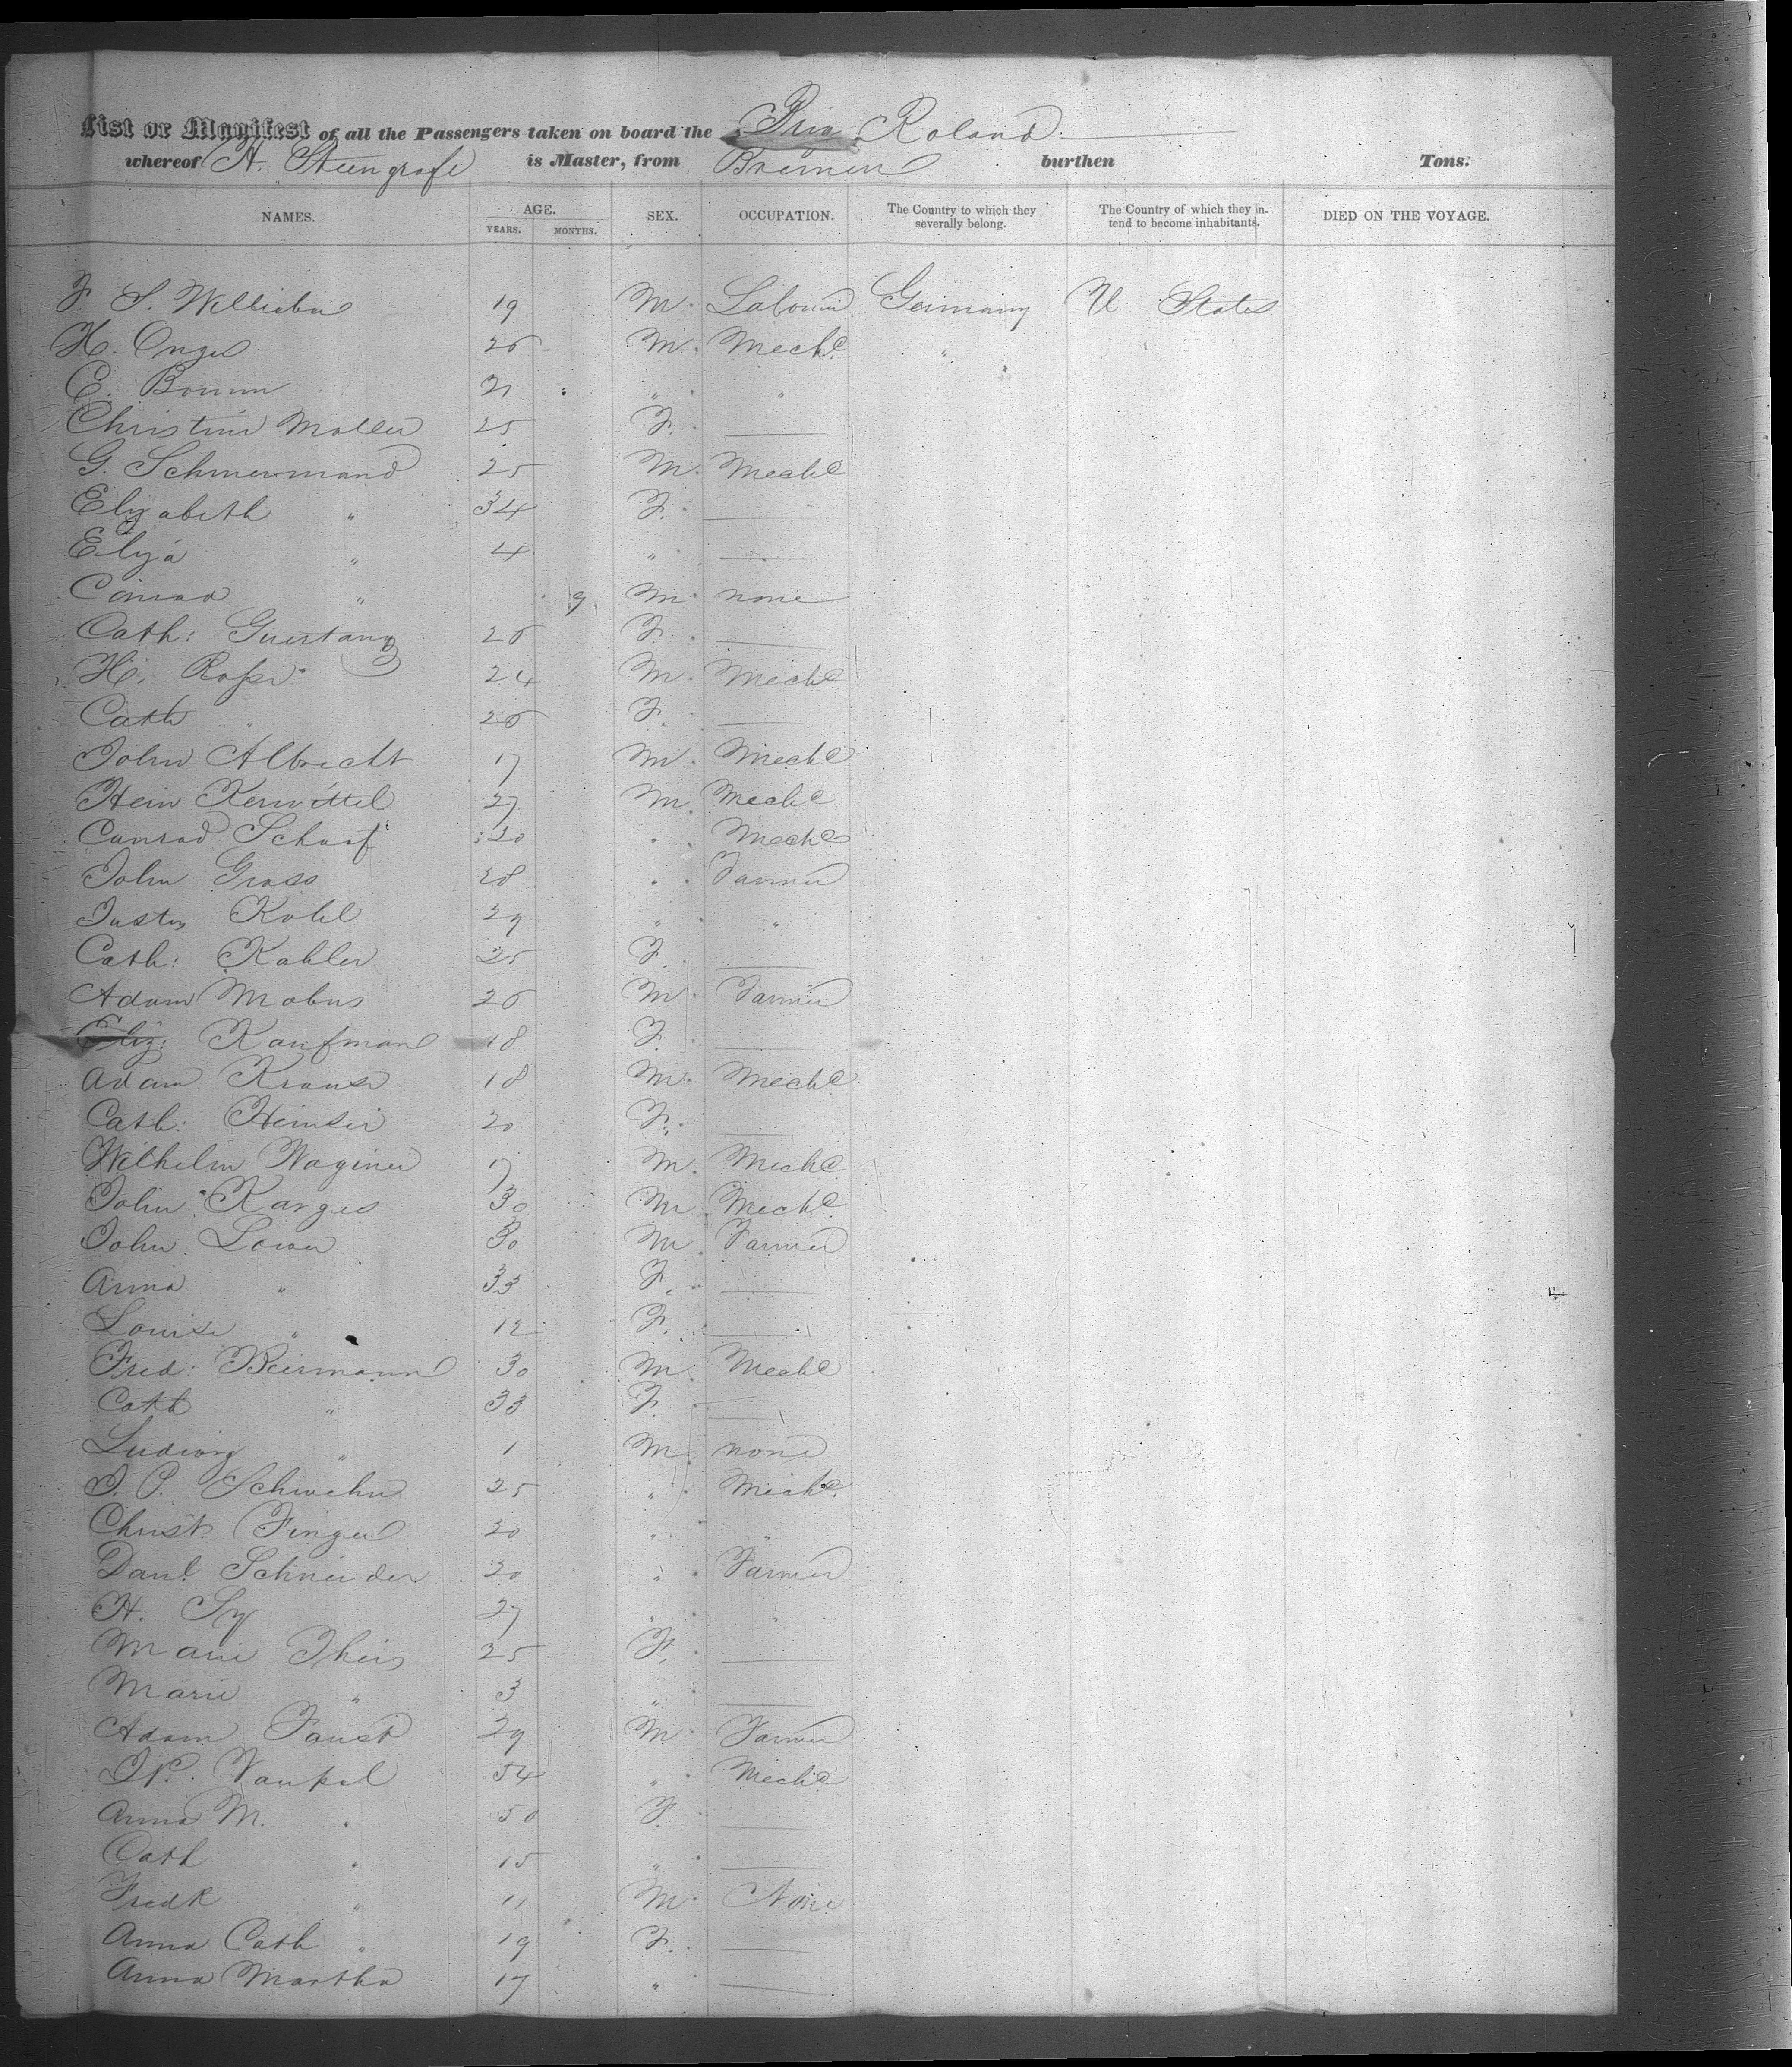 List or Manifest of all the Passengers taken on board the Brig Roland
whereof H. Steengrafe is Master, from Bremen burthen Tons.
NAMES. AGE. YEARS. MONTHS. SEX. OCCUPATION. The Country to which they severally belong. The Country of which they intend to become inhabitants. DIED ON THE VOYAGE.
F. S. 19 M. Germany U States
H. Onges 26 M. Mechc "
C. 21 " "
Christine Moller 25 F. —
G. Schmermand 25 M. Mechc
Elizabeth " 34 F. —
Eliza " 4 " —
Conrad " 9 M. none
Cath: 26 F. —
H. Rosse 24 M. Mechc
Cath " 26 F. —
John Albrecht 17 M. Mechc
Hein Kerwittel 27 M. Mechc
Conrad Schaaf 30 " Mechc
John Gross 28 " Farmer
Justus Kohl 29 " "
Cath: Kahler 25 F. —
Adam Mobus 26 M. Farmer
Eliz: Kaufmann 18 F. —
Adam Krause 18 M. Mechc
Cath: 20 F. —
Wilhelm Waginer 17 M. Mechc
John Karges 30 M. Mechc
John Lower 30 M. Farmer
Anna " 33 F. —
Louise " 12 F. —
Fred: Beermann 30 M. Mechc
Cath " 33 F. —
Ludwig " 1 M. none
J. P. Schwehn 25 " Mechc
Christ. Finger 30 " "
Danl. Schneider 20 " Farmer
H. Sy 27 " "
Marie Theis 25 F. —
Marie " 3 " —
Adam Faust 29 M. Farmer
Vaupel 54 " Mechc
Anna M. " 50 F. —
Cath " 15 " —
Fredk " 11 M. None
Anna Cath " 19 F. —
Anna Martha 17 " —